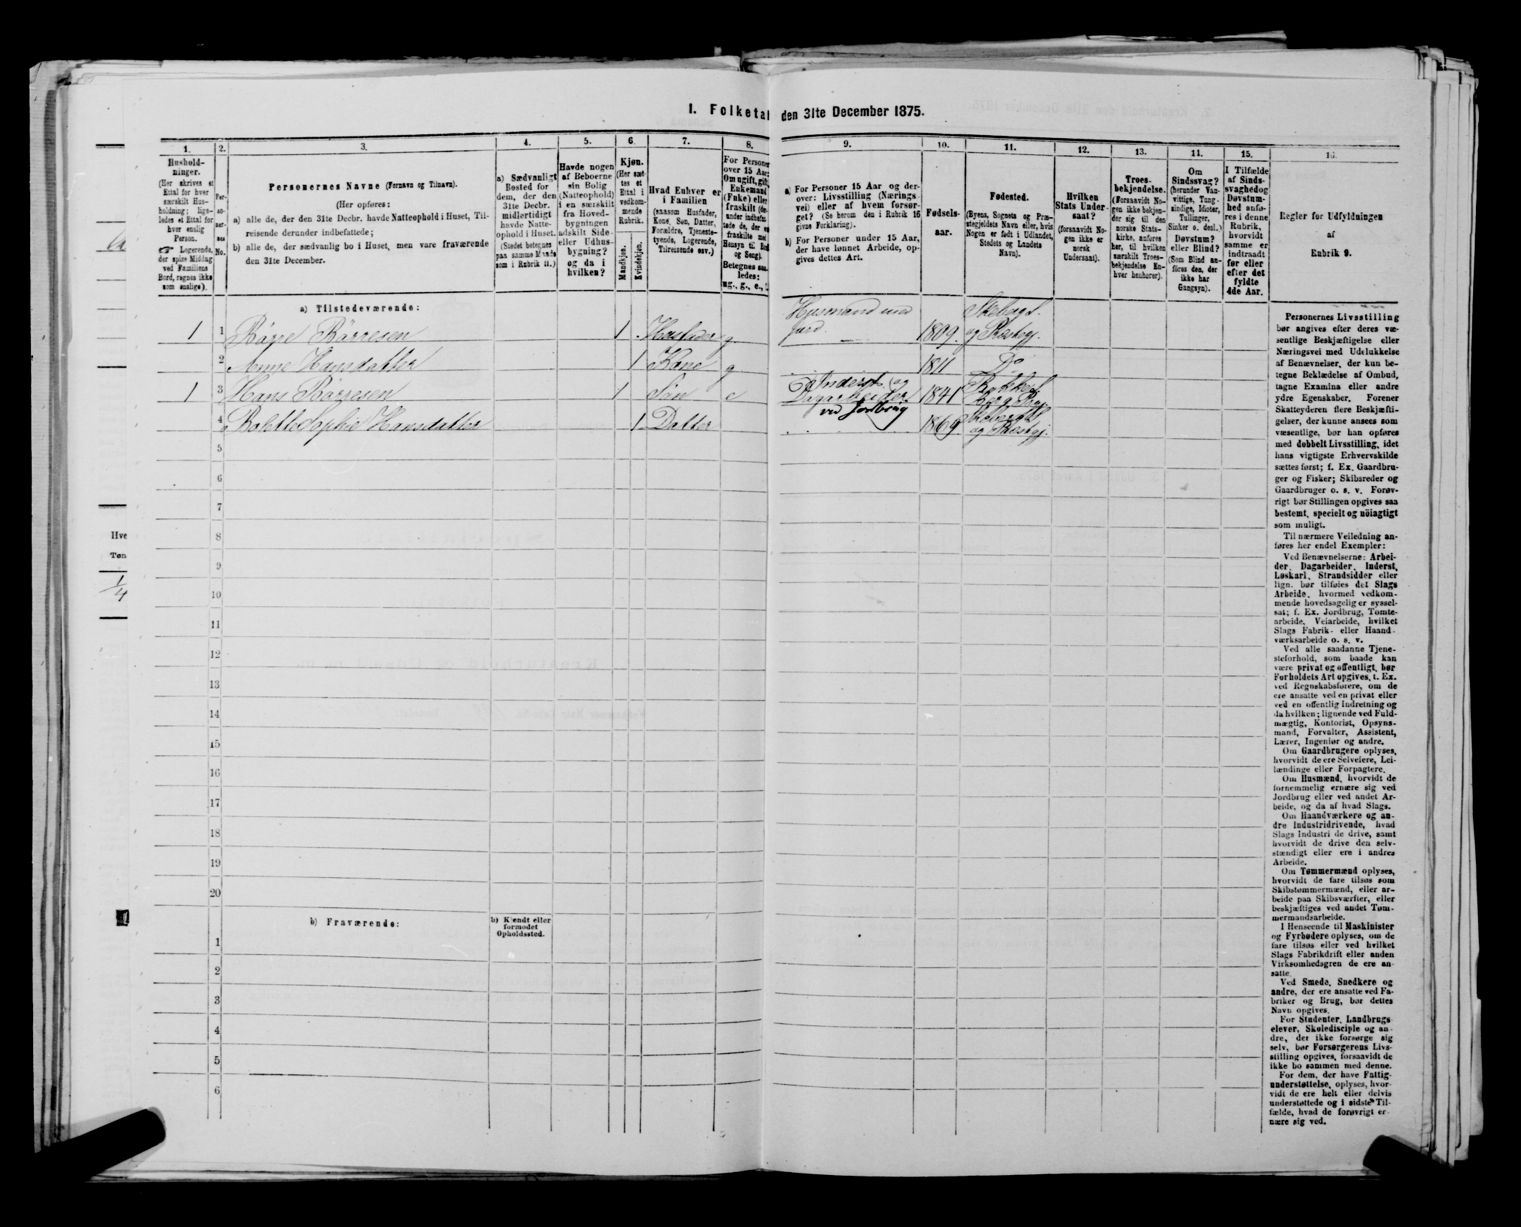 1. Folketal den 31te December 1875.
1.
Hushold-
ninger.
(Her skrives et
Ettal for hver
særskilt Hus-
holdning; lige-
ledes et Ettal for
hver enslig
Person.
☞ Logerende,
der spise Middag
ved Familiens
Bord, regnes ikke
som enslige).
2.
Per-
so-
ner-
nes
No.
3.
Personernes Navne (Fornavn og Tilnavn).
(Her opføres:
a) alle de, der den 31te Decbr. havde Natteophold i Huset, Til-
reisende derunder indbefattede;
b) alle de, der sædvanlig bo i Huset, men vare fraværende
den 31te December.
4.
a) Sædvanligt
Bosted for
dem, der den
31te Decbr.
midlertidigt
havde Natte-
ophold i Huset.
(Stedet betegnes
paa samme Maade
som i Rubrik 11.)
5.
Havde nogen
af Beboerne
sin Bolig
(Natteophold)
i en særskilt
fra Hoved-
bygningen
adskilt Side-
eller Udhus-
bygning?
og da i
hvilken?
6.
Kjøn.
(Her sæt-
tes et
Ettal i
vedkom-
mende
Rubrik.
Mandkjøn.
Kvindekjøn.
7.
Hvad Enhver er
i Familien
(saasom Husfader,
Kone, Søn, Datter,
Forældre, Tjeneste-
tyende, Logerende,
Tilreisende osv.)
8.
For Personer
over 15 Aar:
Om ugift, gift,
Enkemand
(Enke) eller
fraskilt
Betegnes saa-
ledes:
ug., g., e.,
9.
a) For Personer 15 Aar og der-
over: Livsstilling (Nærings-
vei) eller af hvem forsør-
get? (Se herom den i Rubrik 16
givne Forklaring).
b) For Personer under 15 Aar,
der have lønnet Arbeide, op-
gives dettes Art.
10.
Fødsels-
aar.
11.
Fødested.
(Byens, Sognets og Præ-
stegjeldets Navn eller, hvis
Nogen er født i Udlandet,
Stedets og Landets
Navn).
12.
Hvilken
Stats Under-
saat?
(forsaavidt No-
gen ikke er
norsk
Undersaat).
13.
Troes-
bekjendelse.
(Forsaavidt No-
gen ikke bekjen-
der sig til den
norske Stats-
kirke, anføres
her, til hvilken
særskilt Troes-
bekjendelse En-
hver henhører).
14.
Om
Sindssvag?
(herunder Van-
vittige, Tung-
sindige, Idioter,
Tullinger,
Sinker o. desl.)
Døvstum?
eller Blind?
(Som Blind an-
føres den, der
ikke har
Gangsyn).
15.
I Tilfælde
af Sinds-
svaghed og
Døvstum-
hed anfø-
res i denne
Rubrik,
hvorvidt
samme er
indtraadt
før eller
efter det
fyldte
4de Aar.
16.
Regler for Udfyldningen
af
Rubrik 9.
a) Tilstedeværende:
1 1 Børre Börresen 1 Husfader g. Husmand med jord. 1809. Skebergs. og Præstegj.
2 Anne Hansdatter 1 Kone g 1811 Do
1 3 Hans Börresen 1 Søn e Inderst og Dagarbeider ved Jordbrug 1841
4 Bolette Sophie Hansdatter 1 Datter 1869. og Præstegj.
5
6
7
8
9
10
11
12
13
14
15
16
17
18
19
20
b) Fraværende:
b) Kjendt eller
formodet
Opholdssted.
1
2
3
4
5
6
Personernes Livsstilling
bør angives efter deres væ-
sentlige Beskjæftigelse eller
Næringsvei med Udelukkelse
af Benævnelser, der kun be-
tegne Beklædelse af Ombud,
tagne Examina eller andre
ydre Egenskaber. Forener
Skatteyderen flere Beskjæfti-
gelser, der kunne ansees som
væsentlige, bør han opføres
med dobbelt Livsstilling, idet
hans vigtigste Erhvervskilde
sættes først; f. Ex. Gaardbru-
ger og Fisker; Skibsreder og
Gaardbruger o. s. v. Forøv-
rigt bør Stillingen opgives saa
bestemt, specielt og nöiagtigt
som muligt.
Til nærmere Veiledning an-
føres her endel Exempler:
Ved Benævnelserne: Arbei-
der, Dagarbeider, Inderst,
Løskarl, Strandsidder eller
lign. bør tilføies det Slags
Arbeide, hvormed vedkom-
mende hovedsagelig er syssel-
sat; f. Ex. Jordbrug, Tomte-
arbeide, Veiarbeide, hvilket
Slags Fabrik- eller Haand-
værksarbeide o. s. v.
Ved alle saadanne Tjene-
steforhold, som baade kan
være privat og offentligt, bør
Forholdets Art opgives, t. Ex.
ved Regnskabsførere, om de
ere ansatte ved en privat eller
ved en offentlig Indretning og
da hvilken; lignende ved Fuld-
mægtig, Kontorist, Opsyns-
mand, Forvalter, Assistent,
Lærer, Ingeniør og andre.
Om Gaardbrugere oplyses,
hvorvidt de ere Selveiere, Lei-
lændinge eller Forpagtere.
Om Husmænd, hvorvidt de
fornemmelig ernære sig ved
Jordbrug eller ved andet Ar-
beide, og da af hvad Slags.
Om Haandværkere og an-
dre Industridrivende, hvad
Slags Industri de drive, samt
hvorvidt de drive den selv-
stændigt eller ere i andres
Arbeide.
Om Tømmermænd oplyses,
hvorvidt de fare tilsøs som
Skibstømmermænd, eller ar-
beide paa Skibsværfter, eller
beskjæftiges ved andet Tøm-
mermandsarbeide.
I Henseende til Maskinister
og Fyrbødere oplyses, om de
fare tilsøs eller ved hvilket
Slags Fabrikdrift eller anden
Virksomhedsgren de ere an-
satte.
Ved Smede, Snedkere og
andre, der ere ansatte ved Fa-
briker og Brug, bør dettes
Navn opgives.
For Studenter, Landbrugs-
elever, Skoledisciple og an-
dre, der ikke forsørge sig
selv, bør Forsørgerens Livs-
stilling opgives, forsaavidt de
ikke bo sammen med denne.
For dem, der have Fattig-
understøttelse, oplyses, hvor-
vidt de ere helt eller delvis
understøttede og i sidste Til-
fælde, hvad de forøvrigt er-
nære sig ved.
Hve
Tøn
1/4